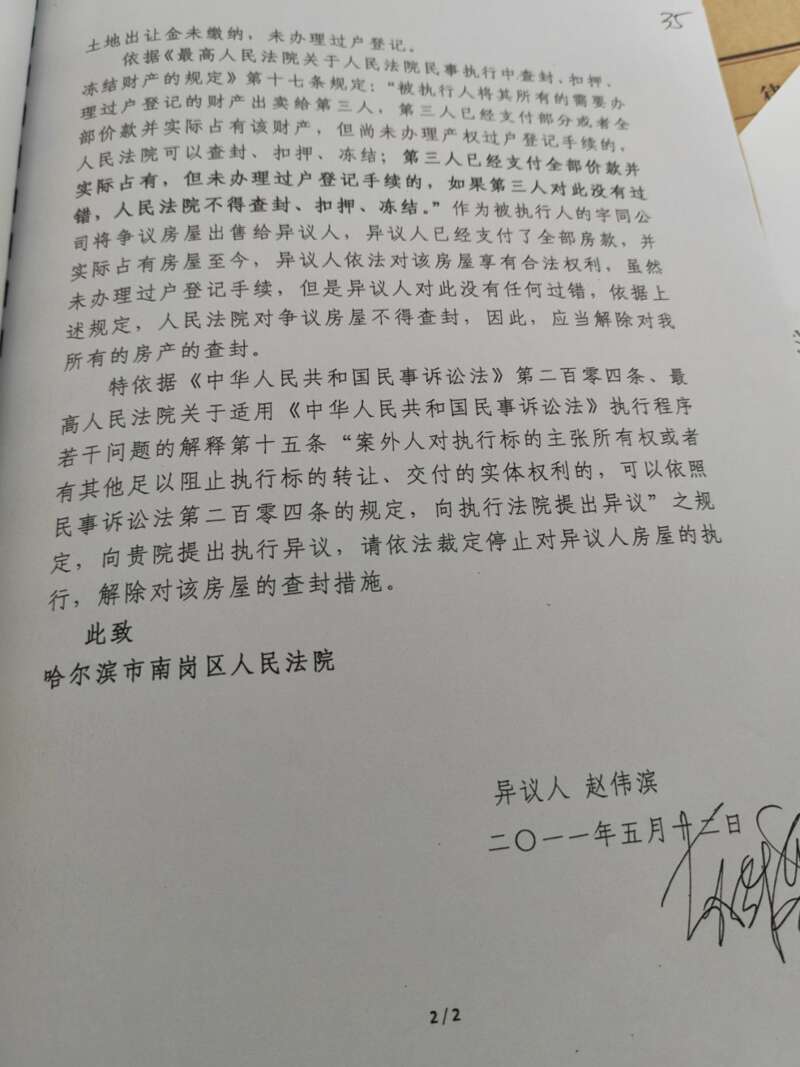 35
土地出让金未缴纳，未办理过户登记。
依据《最高人民法院关于人民法院民事执行中查封、扣押、
冻结财产的规定》第十七条规定：“被执行人将其所有的需要办
理过户登记的财产出卖给第三人，第三人已经支付部分或者全
部价款并实际占有该财产，但尚未办理产权过户登记手续的，
人民法院可以查封、扣押、冻结；第三人已经支付全部价款并
实际占有，但未办理过户登记手续的，如果第三人对此没有过
错，人民法院不得查封、扣押、冻结。”作为被执行人的字同公
司将争议房屋出售给异议人，异议人已经支付了全部房款，并
实际占有房屋至今，异议人依法对该房屋享有合法权利，虽然
未办理过户登记手续，但是异议人对此没有任何过错，依据上
述规定，人民法院对争议房屋不得查封，因此，应当解除对我
所有的房产的查封。
特依据《中华人民共和国民事诉讼法》第二百零四条、最
高人民法院关于适用《中华人民共和国民事诉讼法》执行程序
若干问题的解释第十五条“案外人对执行标的主张所有权或者
有其他足以阻止执行标的转让、交付的实体权利的，可以依照
民事诉讼法第二百零四条的规定，向执行法院提出异议”之规
定，向贵院提出执行异议，请依法裁定停止对异议人房屋的执
行，解除对该房屋的查封措施。
此致
哈尔滨市南岗区人民法院
异议人 赵伟滨
二〇一一年五月廿二日
2/2